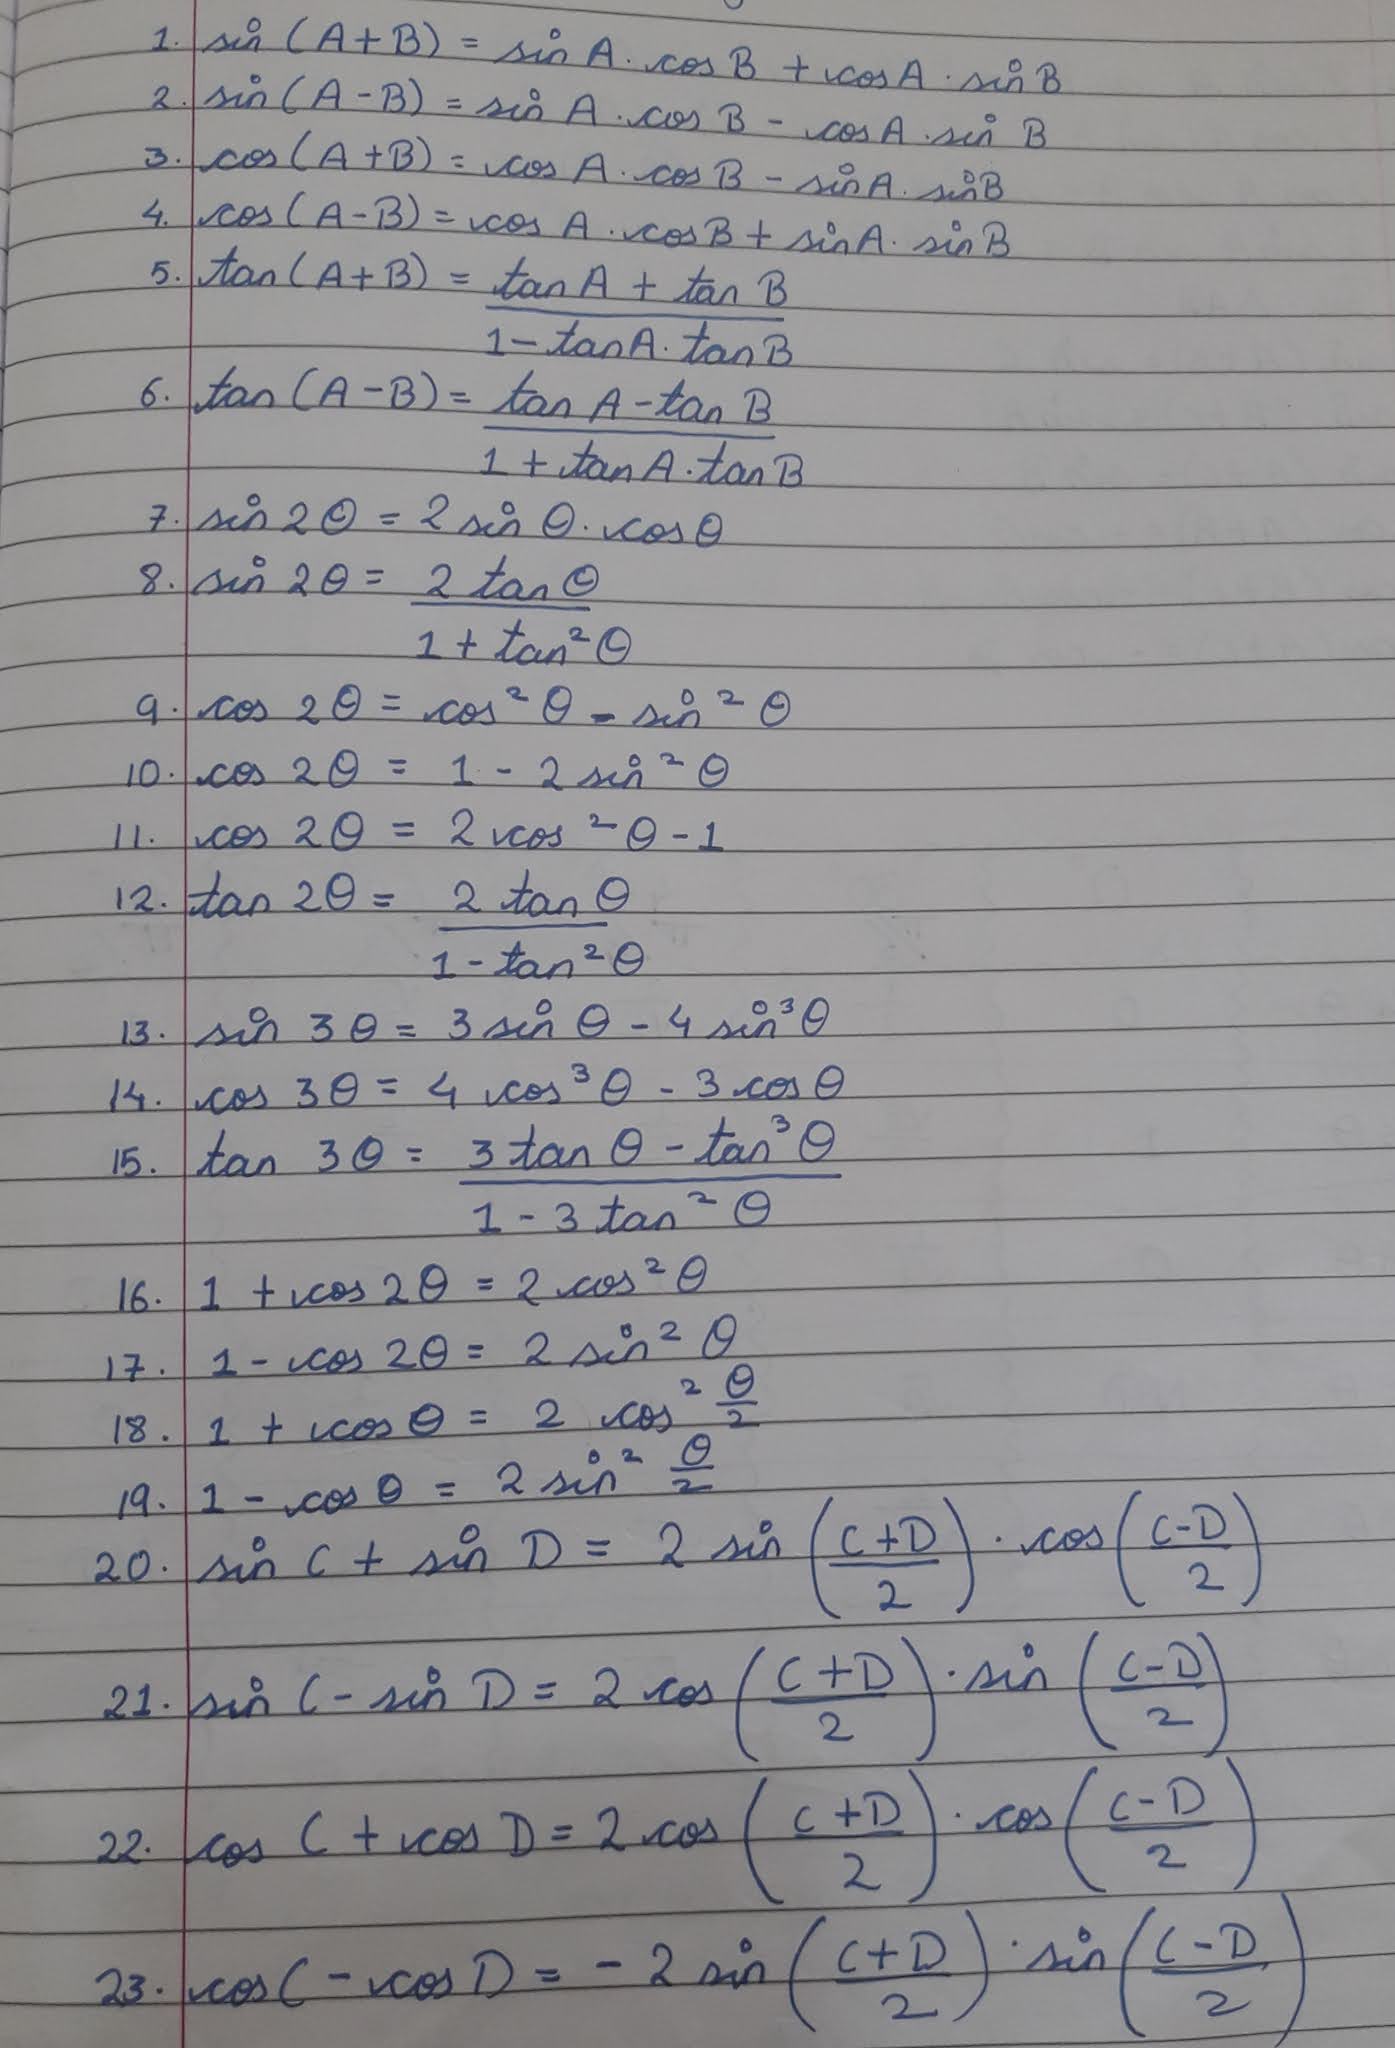 1. sin (A+B) = sin A . cos B + cos A . sin B
2. sin (A - B) = sin A . cos B - cos A . sin B
3. cos (A+B) = cos A . cos B - sin A . sin B
4. cos (A-B) = cos A . cos B + sin A . sin B
5. tan (A+B) = tan A + tan B
1 - tan A . tan B
6. tan (A - B) = tan A - tan B
1 + tan A . tan B
7. sin 2θ = 2 sin θ . cos θ
8. sin 2θ = 2 tan θ
1 + tan² θ
9. cos 2θ = cos² θ - sin² θ
10. cos 2θ = 1 - 2 sin² θ
11. cos 2θ = 2 cos² θ - 1
12. tan 2θ = 2 tan θ
1 - tan² θ
13. sin 3θ = 3 sin θ - 4 sin³ θ
14. cos 3θ = 4 cos³ θ - 3 cos θ
15. tan 3θ = 3 tan θ - tan³ θ
1 - 3 tan² θ
16. 1 + cos 2θ = 2 cos² θ
17. 1 - cos 2θ = 2 sin² θ
18. 1 + cos θ = 2 cos² θ/2
19. 1 - cos θ = 2 sin² θ/2
20. sin C + sin D = 2 sin (C+D/2) . cos (C-D/2)
21. sin C - sin D = 2 cos (C+D/2) . sin (C-D/2)
22. cos C + cos D = 2 cos (C+D/2) . cos (C-D/2)
23. cos C - cos D = - 2 sin (C+D/2) . sin (C-D/2)